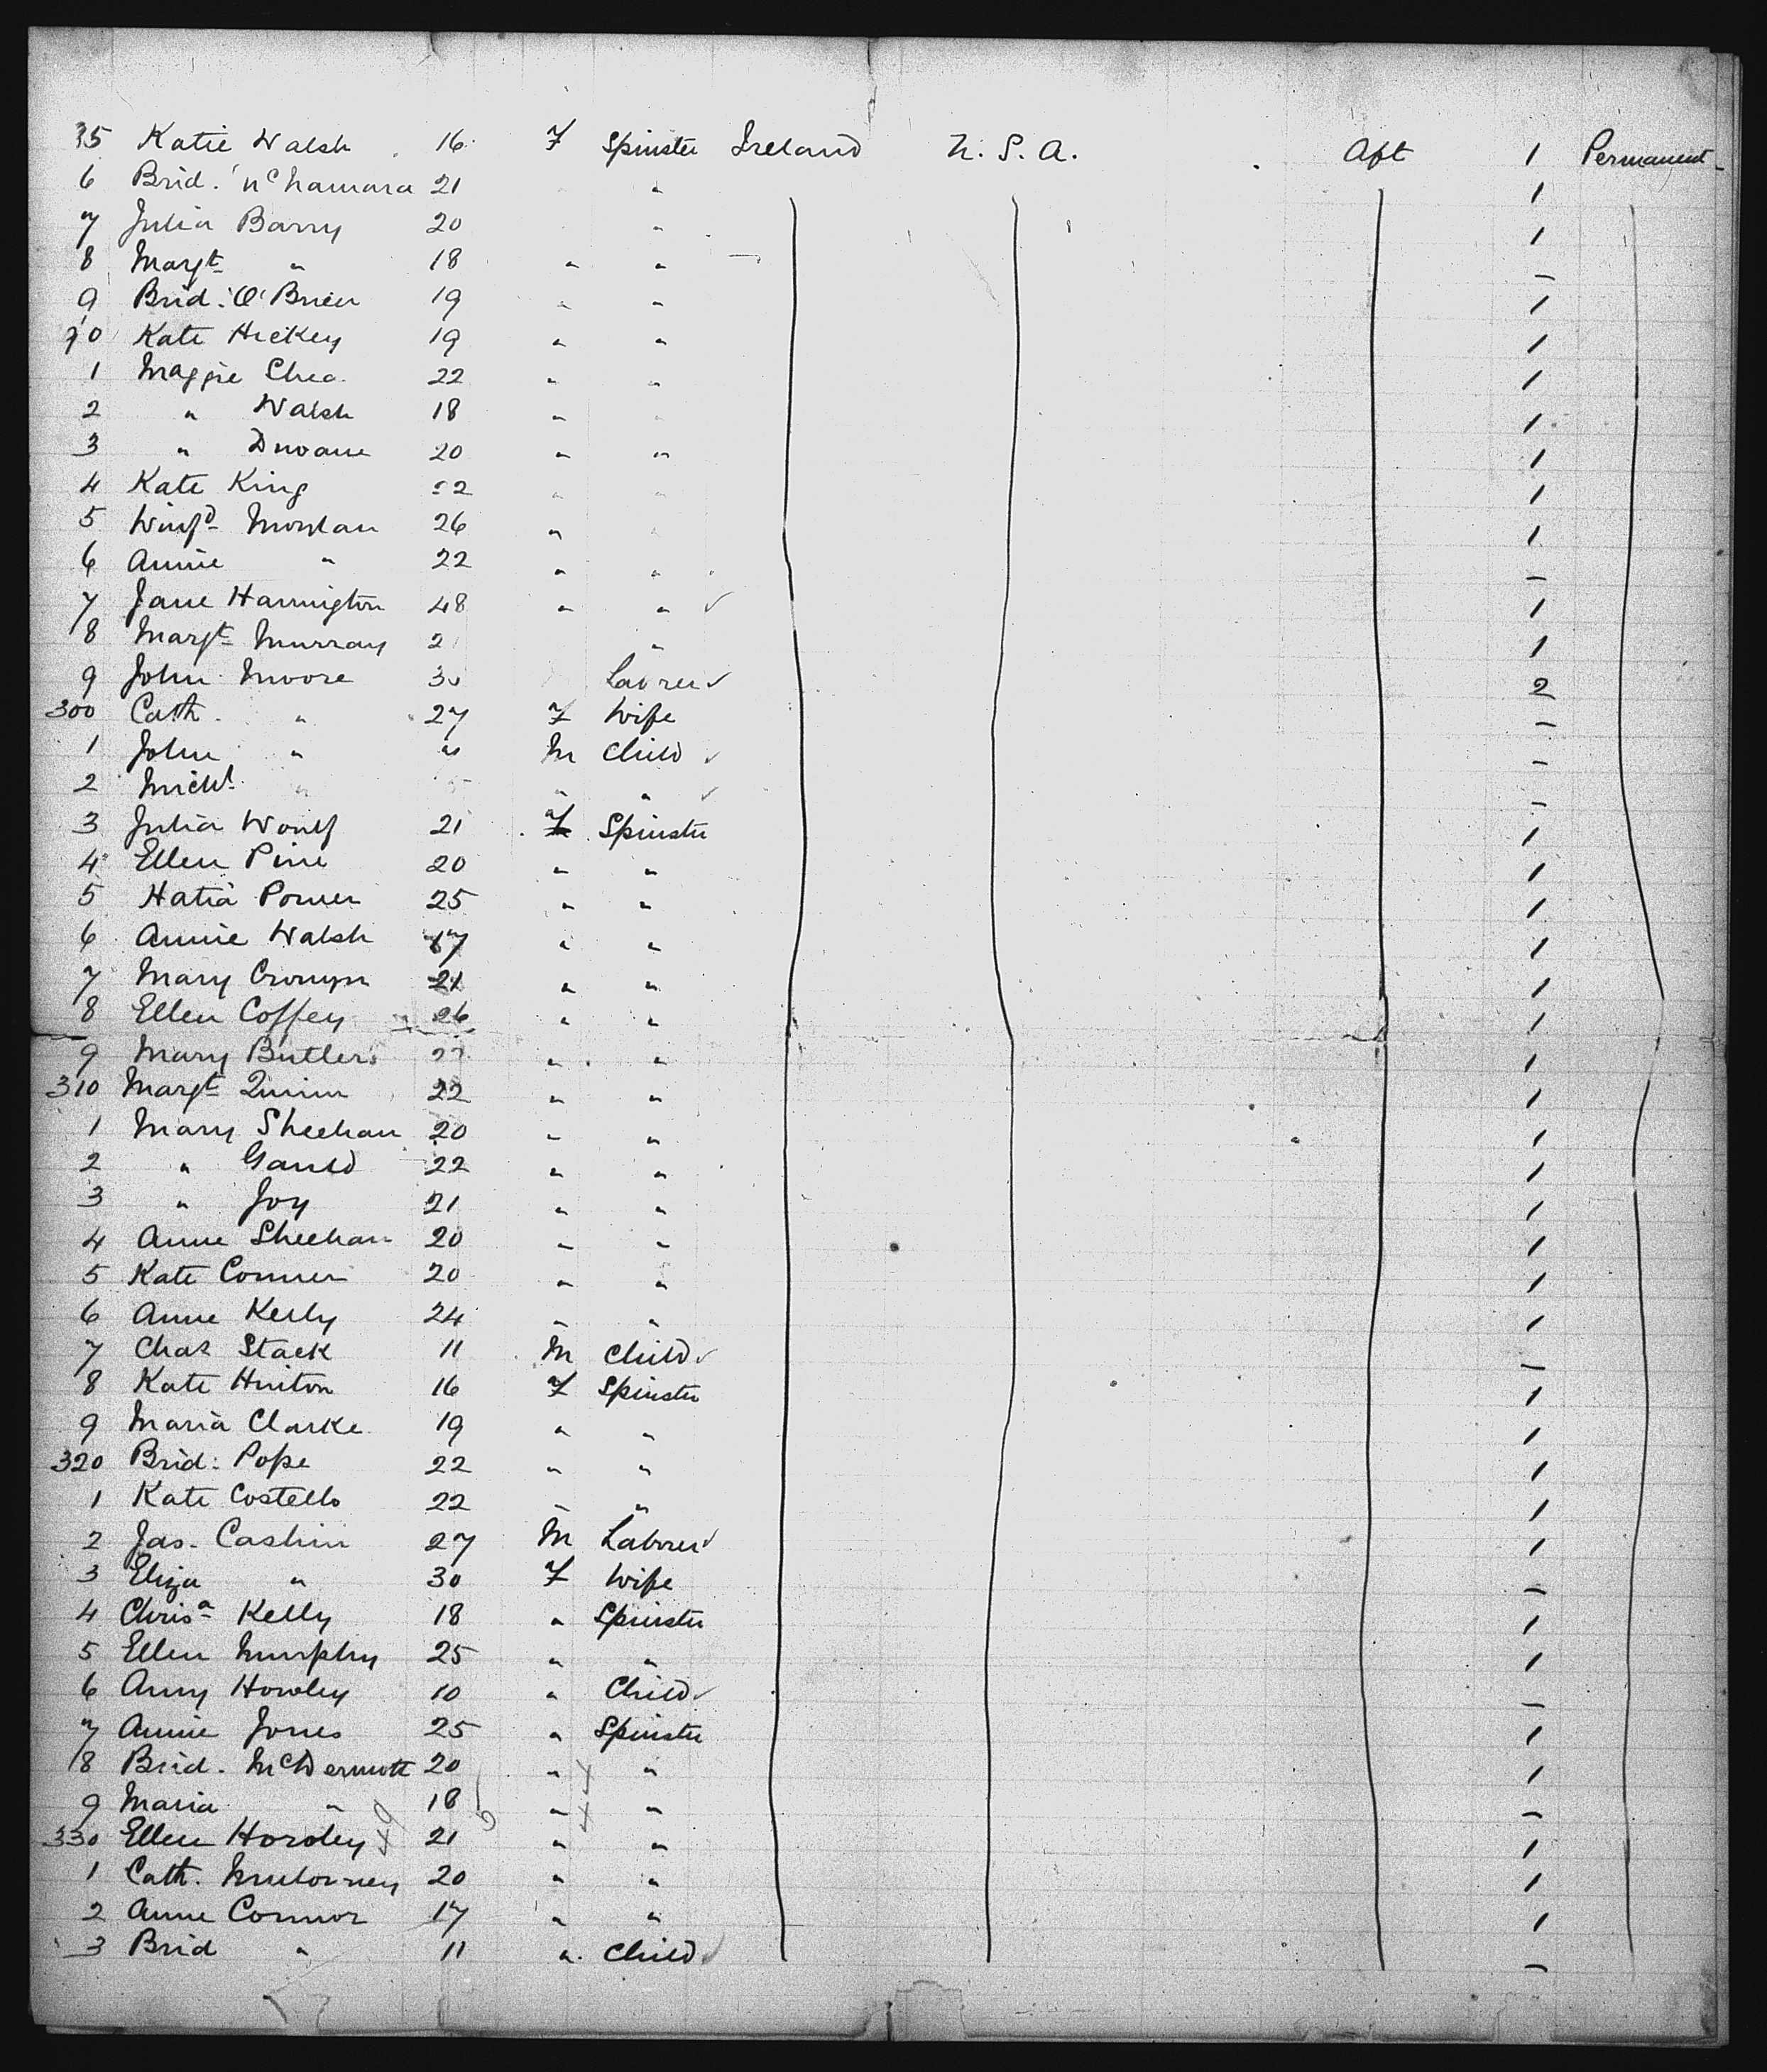 35 Katie Walsh 16 F Spinster Ireland U. S. A. Aft 1 Permanent
6 Brid. McNamara 21 " 1
7 Julia Barry 20 " 1
8 Margt " 18 " " –
9 Brid. O'Brien 19 " " 1
90 Kate Hickey 19 " " 1
1 Maggie Shea 22 " " 1
2 " Walsh 18 " " 1
3 " Dwane 20 " " 1
4 Kate King 22 " " 1
5 Winfd 26 " 1
6 Annie " 22 " " –
7 Jane Harrington 48 " " ✓ 1
8 Margt Murray 2 " 1
9 John Moore 30 Laborer ✓ 2
300 Cath. " 27 F Wife –
1 John " M Child ✓ –
2 Michl " " " ✓ –
3 Julia Woulf 21 F Spinster 1
4 Ellen Pine 20 " " 1
5 Power 25 " " 1
6 Annie Walsh 17 " " 1
7 Mary 21 " " 1
8 Ellen Coffey 26 " " 1
9 Mary Butler " " 1
310 Margt Quinn 22 " " 1
1 Mary Sheehan 20 " " 1
2 " Gauld 22 " " 1
3 " Joy 21 " " 1
4 Anne Sheehan 20 " " 1
5 Kate Conner 20 " " 1
6 Anne Kelly 24 " " 1
7 Chas Stack 11 M Child ✓ –
8 Kate Hinton 16 F Spinster 1
9 Maria Clarke 19 " " 1
320 Brid: Pope 22 " " 1
1 Kate Costello 22 " " 1
2 Jas. Cashin 27 M Laborer ✓ 1
3 Eliza " 30 F Wife –
4 Chrisa Kelly 18 " Spinster 1
5 Ellen Murphy 25 " " 1
6 Amy Howley 10 " Child ✓ –
7 Annie Jones 25 " Spinster 1
8 Brid. McDermott 20 " " 1
9 Maria " 18 " " –
330 Ellen Howley 21 " " 1
1 Cath. 20 " " 1
2 Anne Connor 17 " " 1
3 Brid " 11 " Child ✓ –